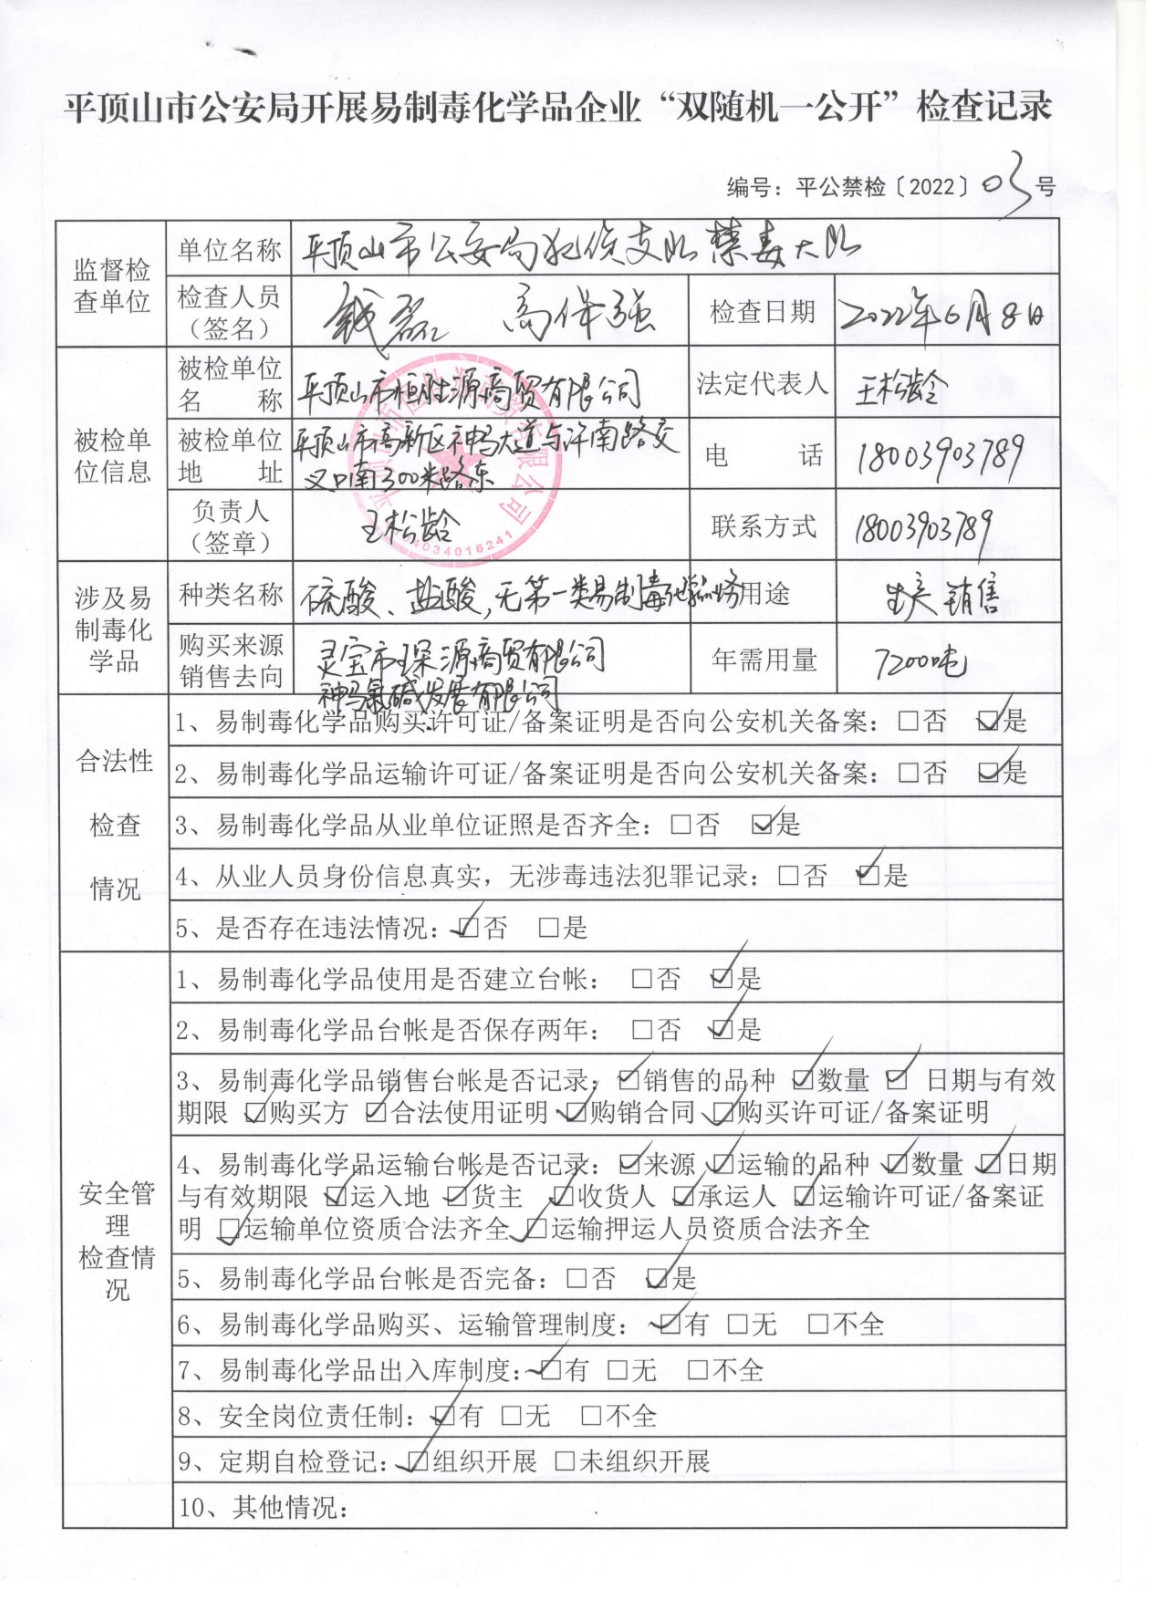 平顶山市公安局开展易制毒化学品企业“双随机一公开”检查记录
编号：平公禁检〔2022〕03号
监督检查单位
单位名称 平顶山市公安局犯侦支队禁毒大队
检查人员（签名） 钱磊 高伟强 检查日期 2022年6月8日
被检单位信息
被检单位名 称 平顶山市恒胜源商贸有限公司 法定代表人 王松龄
被检单位地 址 平顶山市高新区神马大道与许南路交 电 话 18003903789
叉口南300米路东
负责人（签章） 王松龄 联系方式 18003903789
4034016241
涉及易制毒化学品
种类名称 硫酸、盐酸,无第一类易制毒化学品 用途 生产 销售
购买来源 灵宝市琛源商贸有限公司 年需用量 72000吨
销售去向 神马氯碱发展有限公司
合法性检查情况
1、易制毒化学品购买许可证/备案证明是否向公安机关备案：□否 ☑是
2、易制毒化学品运输许可证/备案证明是否向公安机关备案：□否 ☑是
3、易制毒化学品从业单位证照是否齐全：□否 ☑是
4、从业人员身份信息真实，无涉毒违法犯罪记录：□否 ☑是
5、是否存在违法情况：☑否 □是
安全管理检查情况
1、易制毒化学品使用是否建立台帐： □否 ☑是
2、易制毒化学品台帐是否保存两年： □否 ☑是
3、易制毒化学品销售台帐是否记录：☑销售的品种 ☑数量 ☑ 日期与有效
期限 ☑购买方 ☑合法使用证明 ☑购销合同 ☑购买许可证/备案证明
4、易制毒化学品运输台帐是否记录：☑来源 ☑运输的品种 ☑数量 ☑日期
与有效期限 ☑运入地 ☑货主 ☑收货人 ☑承运人 ☑运输许可证/备案证
明 ☑运输单位资质合法齐全 ☑运输押运人员资质合法齐全
5、易制毒化学品台帐是否完备：□否 ☑是
6、易制毒化学品购买、运输管理制度： ☑有 □无 □不全
7、易制毒化学品出入库制度：☑有 □无 □不全
8、安全岗位责任制：☑有 □无 □不全
9、定期自检登记：☑组织开展 □未组织开展
10、其他情况：